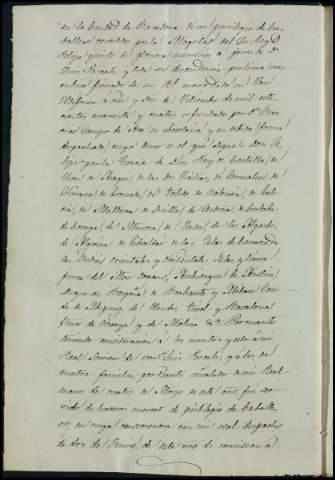 en la Ciudad de Barcelona de un privilegio de Ca-
ballero concedido por la Magestad del Sr. Rey Dn.
Felipe quinto de gloriosa memoria a favor de Dn.
Luis y toda su descendencia por linea mas-
culina firmado de su Rl. mano dado en San
Ildefonso a diez y ocho de Setiembre de mil sete-
cientos y cuatro refrendado por Dn. Fran-
cisco su Secretario y en debida forma
despachado cuyo tenor es el que sigue = Don Fe-
lipe por la Gracia de Dios Rey de Castilla, de
Leon, de Aragon, de las dos Sicilias, de Jerusalen, de
Navarra, de Granada, de Toledo, de Valencia, de Gali-
cia, de Mallorca, de Sevilla, de Cerdeña, de Cordoba,
de Corcega, de Murcia, de Jaen, de los Algarbes,
de Algecira, de Gibraltar, de las Islas de Canaria, de
las Indias orientales y occidentales, Islas y tierra
firme del Mar Oceano, Archiduque de Austria,
Duque de Borgoña, de Brabante y Milan, Con-
de de Abspurg, de Flandes, Tirol y Barcelona,
Señor de Vizcaya y de Molina &a. Por cuanto
teniendo consideracion a los meritos y
Real Servicio de vos Luis y a los de
vuestra familia; por Decreto señalado de mi Real
mano de cuatro de Mayo de este año fui ser-
vido de haceros merced de privilegio de Caballe-
ro, en cuya consecuencia con mi real despacho
de dos de Junio de este año di comision a